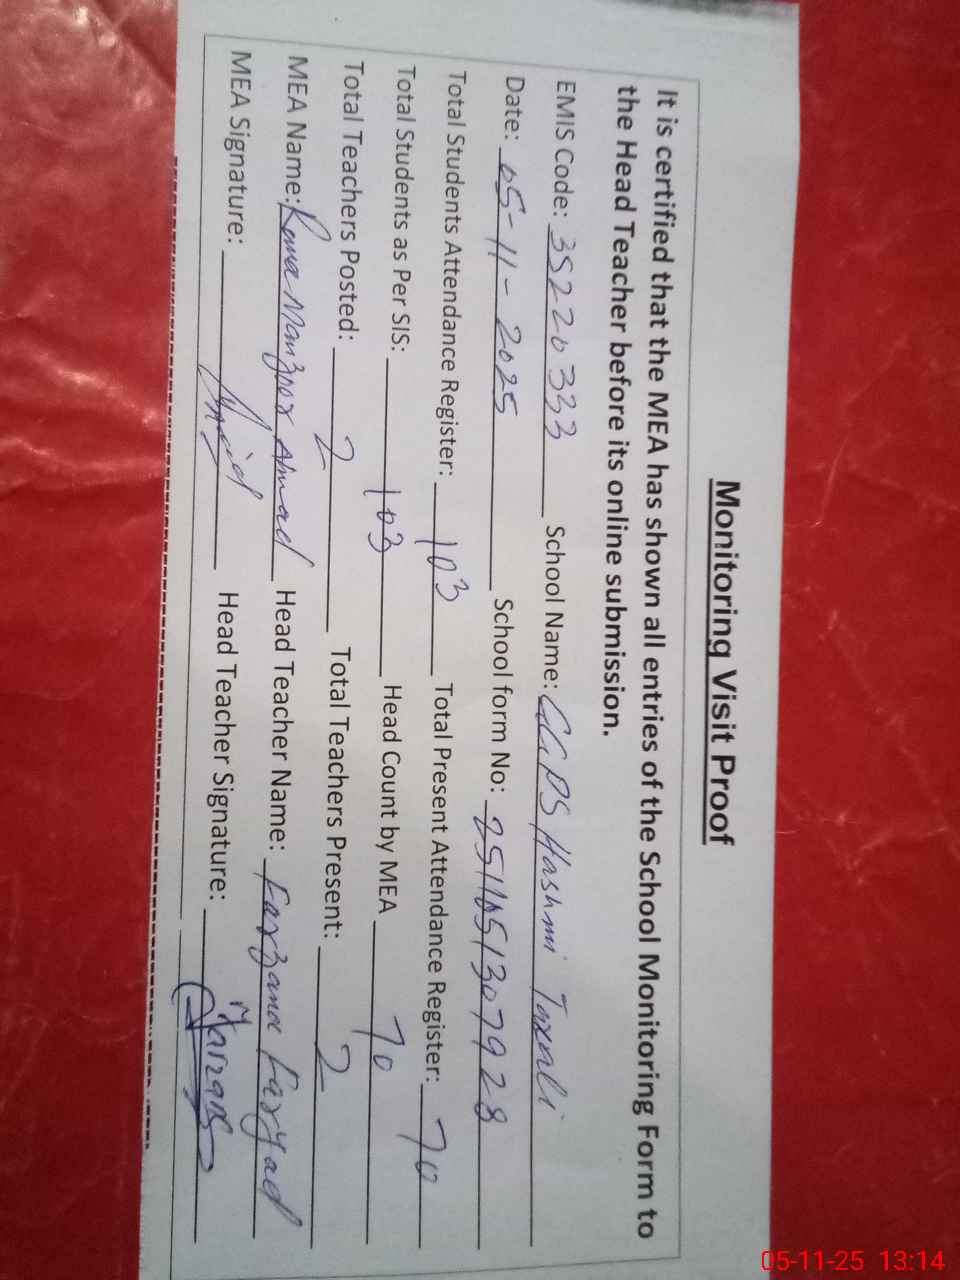 Monitoring Visit Proof
It is certified that the MEA has shown all entries of the School Monitoring Form to
the Head Teacher before its online submission.
EMIS Code: 35220333 School Name: GGPS Hashmi
Date: 05-11-2025 School form No: 2511051307928
Total Students Attendance Register: 103 Total Present Attendance Register: 70
Total Students as Per SIS: 103 Head Count by MEA 70
Total Teachers Posted: 2 Total Teachers Present: 2
MEA Name: Rana Manzoor Ahmad Head Teacher Name: Farzana Faryad
MEA Signature: Head Teacher Signature:
05-11-25 13:14